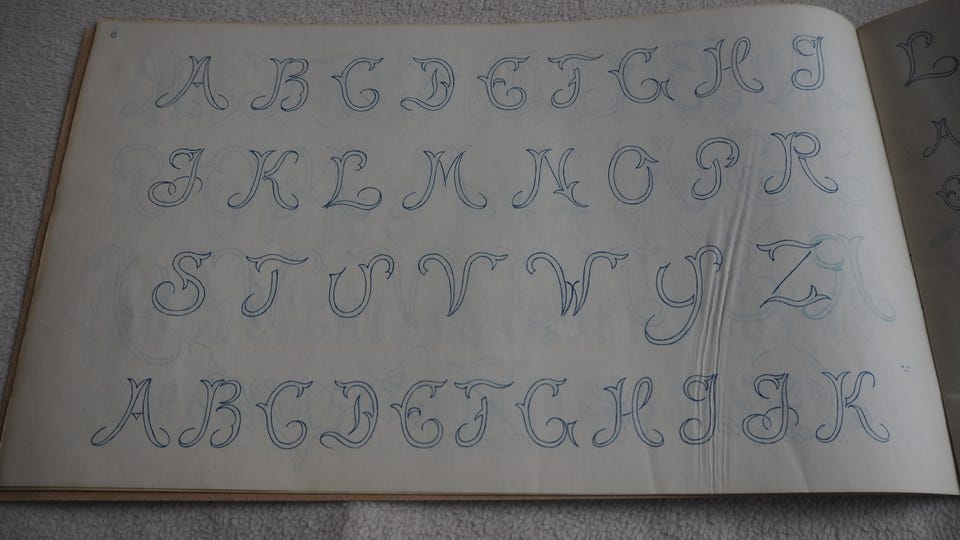 6
A B C D E F G H I
J K L M N O P R
S T U V W Y Z
A B C D E F G H I J K
L
A